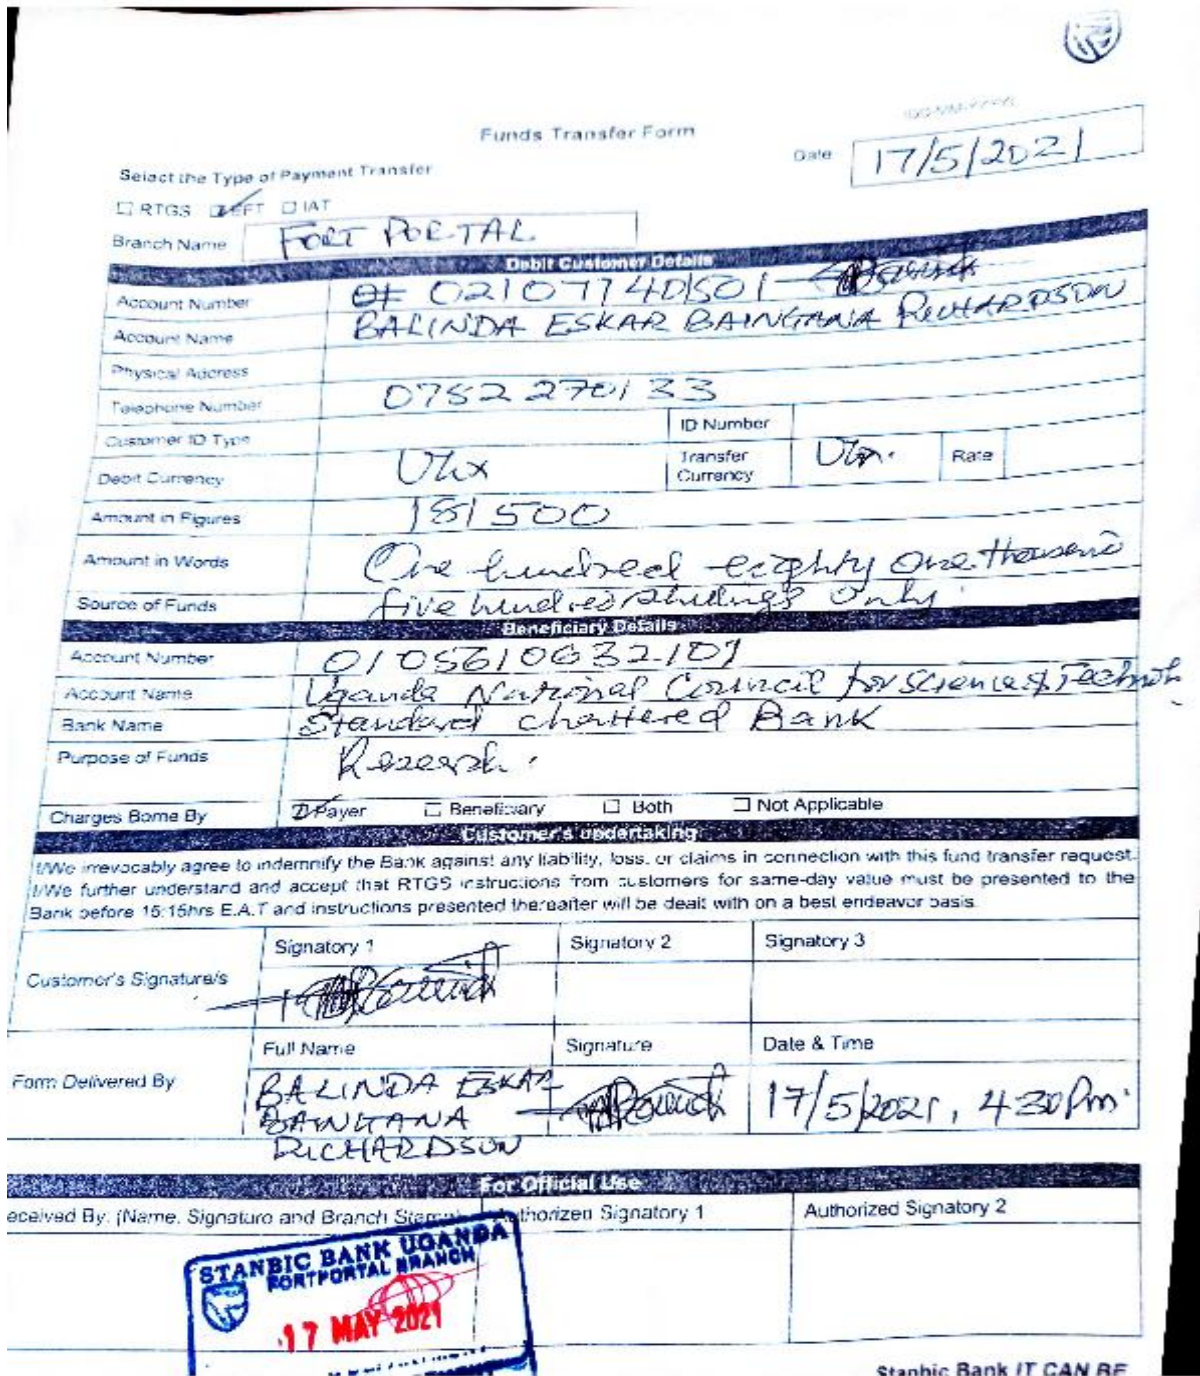 Funds Transfer Form
Date 17/5/2021
Select the Type of Payment Transfer
RTGS EFT IAT
Branch Name FORT PORTAL
Debit Customer Details
Account Number
Account Name BALINDA ESKAR BAINGANA RICHARDSON
Physical Address
Telephone Number 0782270133
Customer ID Type ID Number
Debit Currency Ushx Transfer Currency Rate
Amount in Figures 181500
Amount in Words One hundred eighty one thousand
Source of Funds five hundred shillings only.
Beneficiary Details
Account Number
Account Name Uganda National Council for Science & Technolo
Bank Name Standard Chartered Bank
Purpose of Funds Research.
Charges Borne By Payer Beneficiary Both Not Applicable
Customer's undertaking
I/We irrevocably agree to indemnify the Bank against any liability, loss, or claims in connection with this fund transfer request.
I/We further understand and accept that RTGS instructions from customers for same-day value must be presented to the
Bank before 15:15hrs E.A.T and instructions presented thereafter will be dealt with on a best endeavor basis.
Signatory 1 Signatory 2 Signatory 3
Customer's Signature/s
Full Name Signature Date & Time
Form Delivered By BALINDA ESKAR 17/5/2021, 4:30Pm.
BAINGANA
RICHARDSON
For Official Use
eceived By: (Name, Signature and Branch Stamp) Authorized Signatory 1 Authorized Signatory 2
STANBIC BANK UGANDA
FORTPORTAL BRANCH
17 MAY 2021
Stanbic Bank IT CAN BE